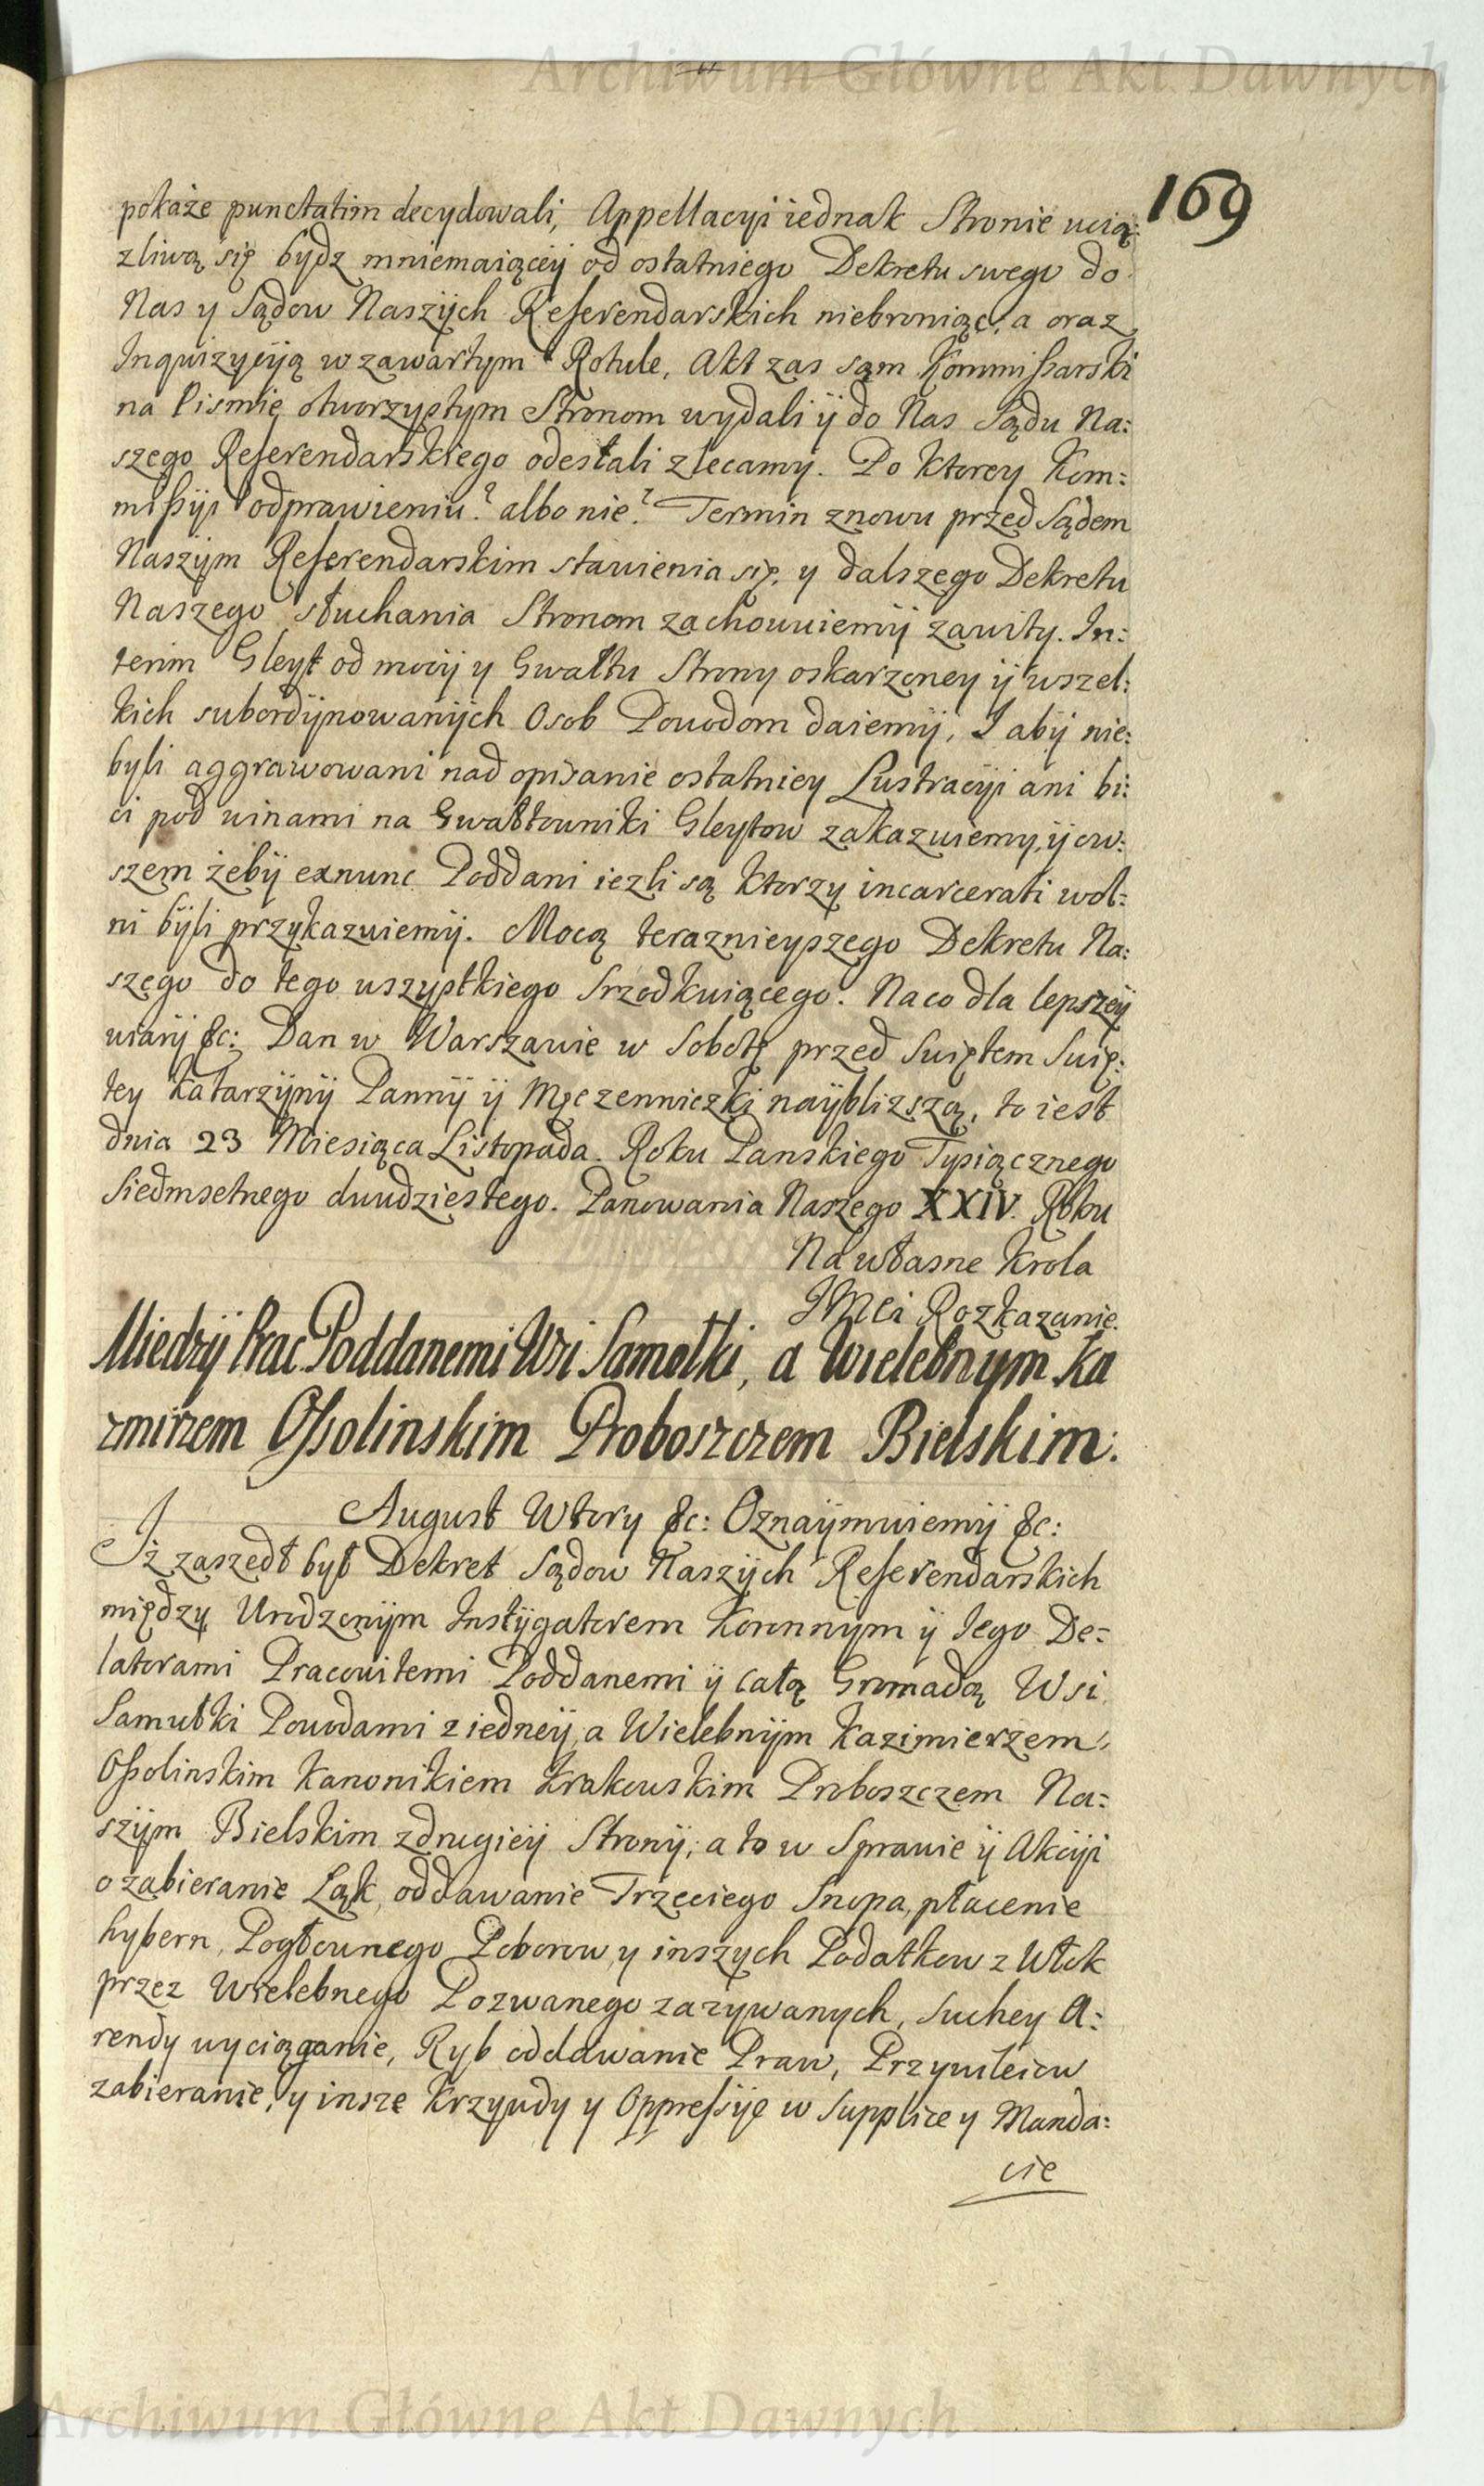 Archiwum Główne Akt Dawnych
169
pokaże punctatim decydowali, Appellacyi iednak Stronie ucią:
zliwą się bydz mniemaiącey od ostatniego Dekretu swego do
Nas y Sądow Naszych Referendarskich niebroniąc, a oraz
Inquizycyią w zawartym Rotule, Akt zas sam Kommißarski
na Pismie otworzystym Stronom wydali ÿ do Nas Sądu Na:
szego Referendarskiego odesłali zlecamy. Po ktorey Kom:
mißÿi odprawieniu? albo nie? Termin znowu przed Sądem
Naszÿm Referendarskim stawienia się, y dalszego Dekretu
Naszego słuchania Stronom zachowuiemÿ zawity. In:
terim Gleyt od mocÿ y Gwałtu Strony oskarzoney ÿ wszel:
kich subordÿnowanÿch Osob Powodom daiemÿ, I abÿ nie:
byli aggrawowani nad opisanie ostatniey Lustracÿi ani bi:
ci pod winami na Gwałtowniki Gleytow zakazuiemy, ÿ ow:
szem żebÿ exnunc Poddani iezli są ktorzy incarcerati wol:
ni bÿli przykazuiemÿ. Mocą teraznieyszego Dekretu Na:
szego do tego wszystkiego srzodkuiącego. Na co dla lepszeÿ
wiarÿ &c: Dan w Warszawie w Sobotę przed Swiętem Swię:
tey Katarzÿnÿ Pannÿ ÿ Męczenniczki naÿblizszą, to iest
dnia 23 Miesiąca Listopada. Roku Panskiego Tysiącznego
Siedmsetnego dwudziestego. Panowania Naszego XXIV. Roku
Na własne Krola
JMCi Rozkazanie.
Miedzÿ Prac Poddanemi Wsi Samołki, a Wielebnym Ka
zmirzem Oßolinskim Proboszczem Bielskim:
August Wtory &c: Oznaÿmuiemÿ &c:
Iż zaszedł był Dekret Sądow Naszÿch Referendarskich
między Urodzonÿm Instÿgatorem Koronnym ÿ Jego De:
latorami Pracowitemi Poddanemi ÿ całą Gromadą Wsi
Samułki Powodami z iedneÿ, a Wielebnÿm Kazimierzem
Oßolinskim Kanonikiem Krakowskim Proboszczem Na:
szÿm Bielskim z drugieÿ Stronÿ, a to w Sprawie ÿ Akcÿi
o zabieranie Łąk, oddawanie Trzeciego Snopa, płacenie
hybern, Pogłownego Poborow y inszych Podatkow z Włok
przez Wielebnego Pozwanego zazywanych, suchey A:
rendy wyciąganie, Ryb oddawanie Praw, Przywileiow
zabieranie, y insze Krzywdy y Oppreßÿe w Supplice y Manda:
cie
Archiwum Główne Akt Dawnych